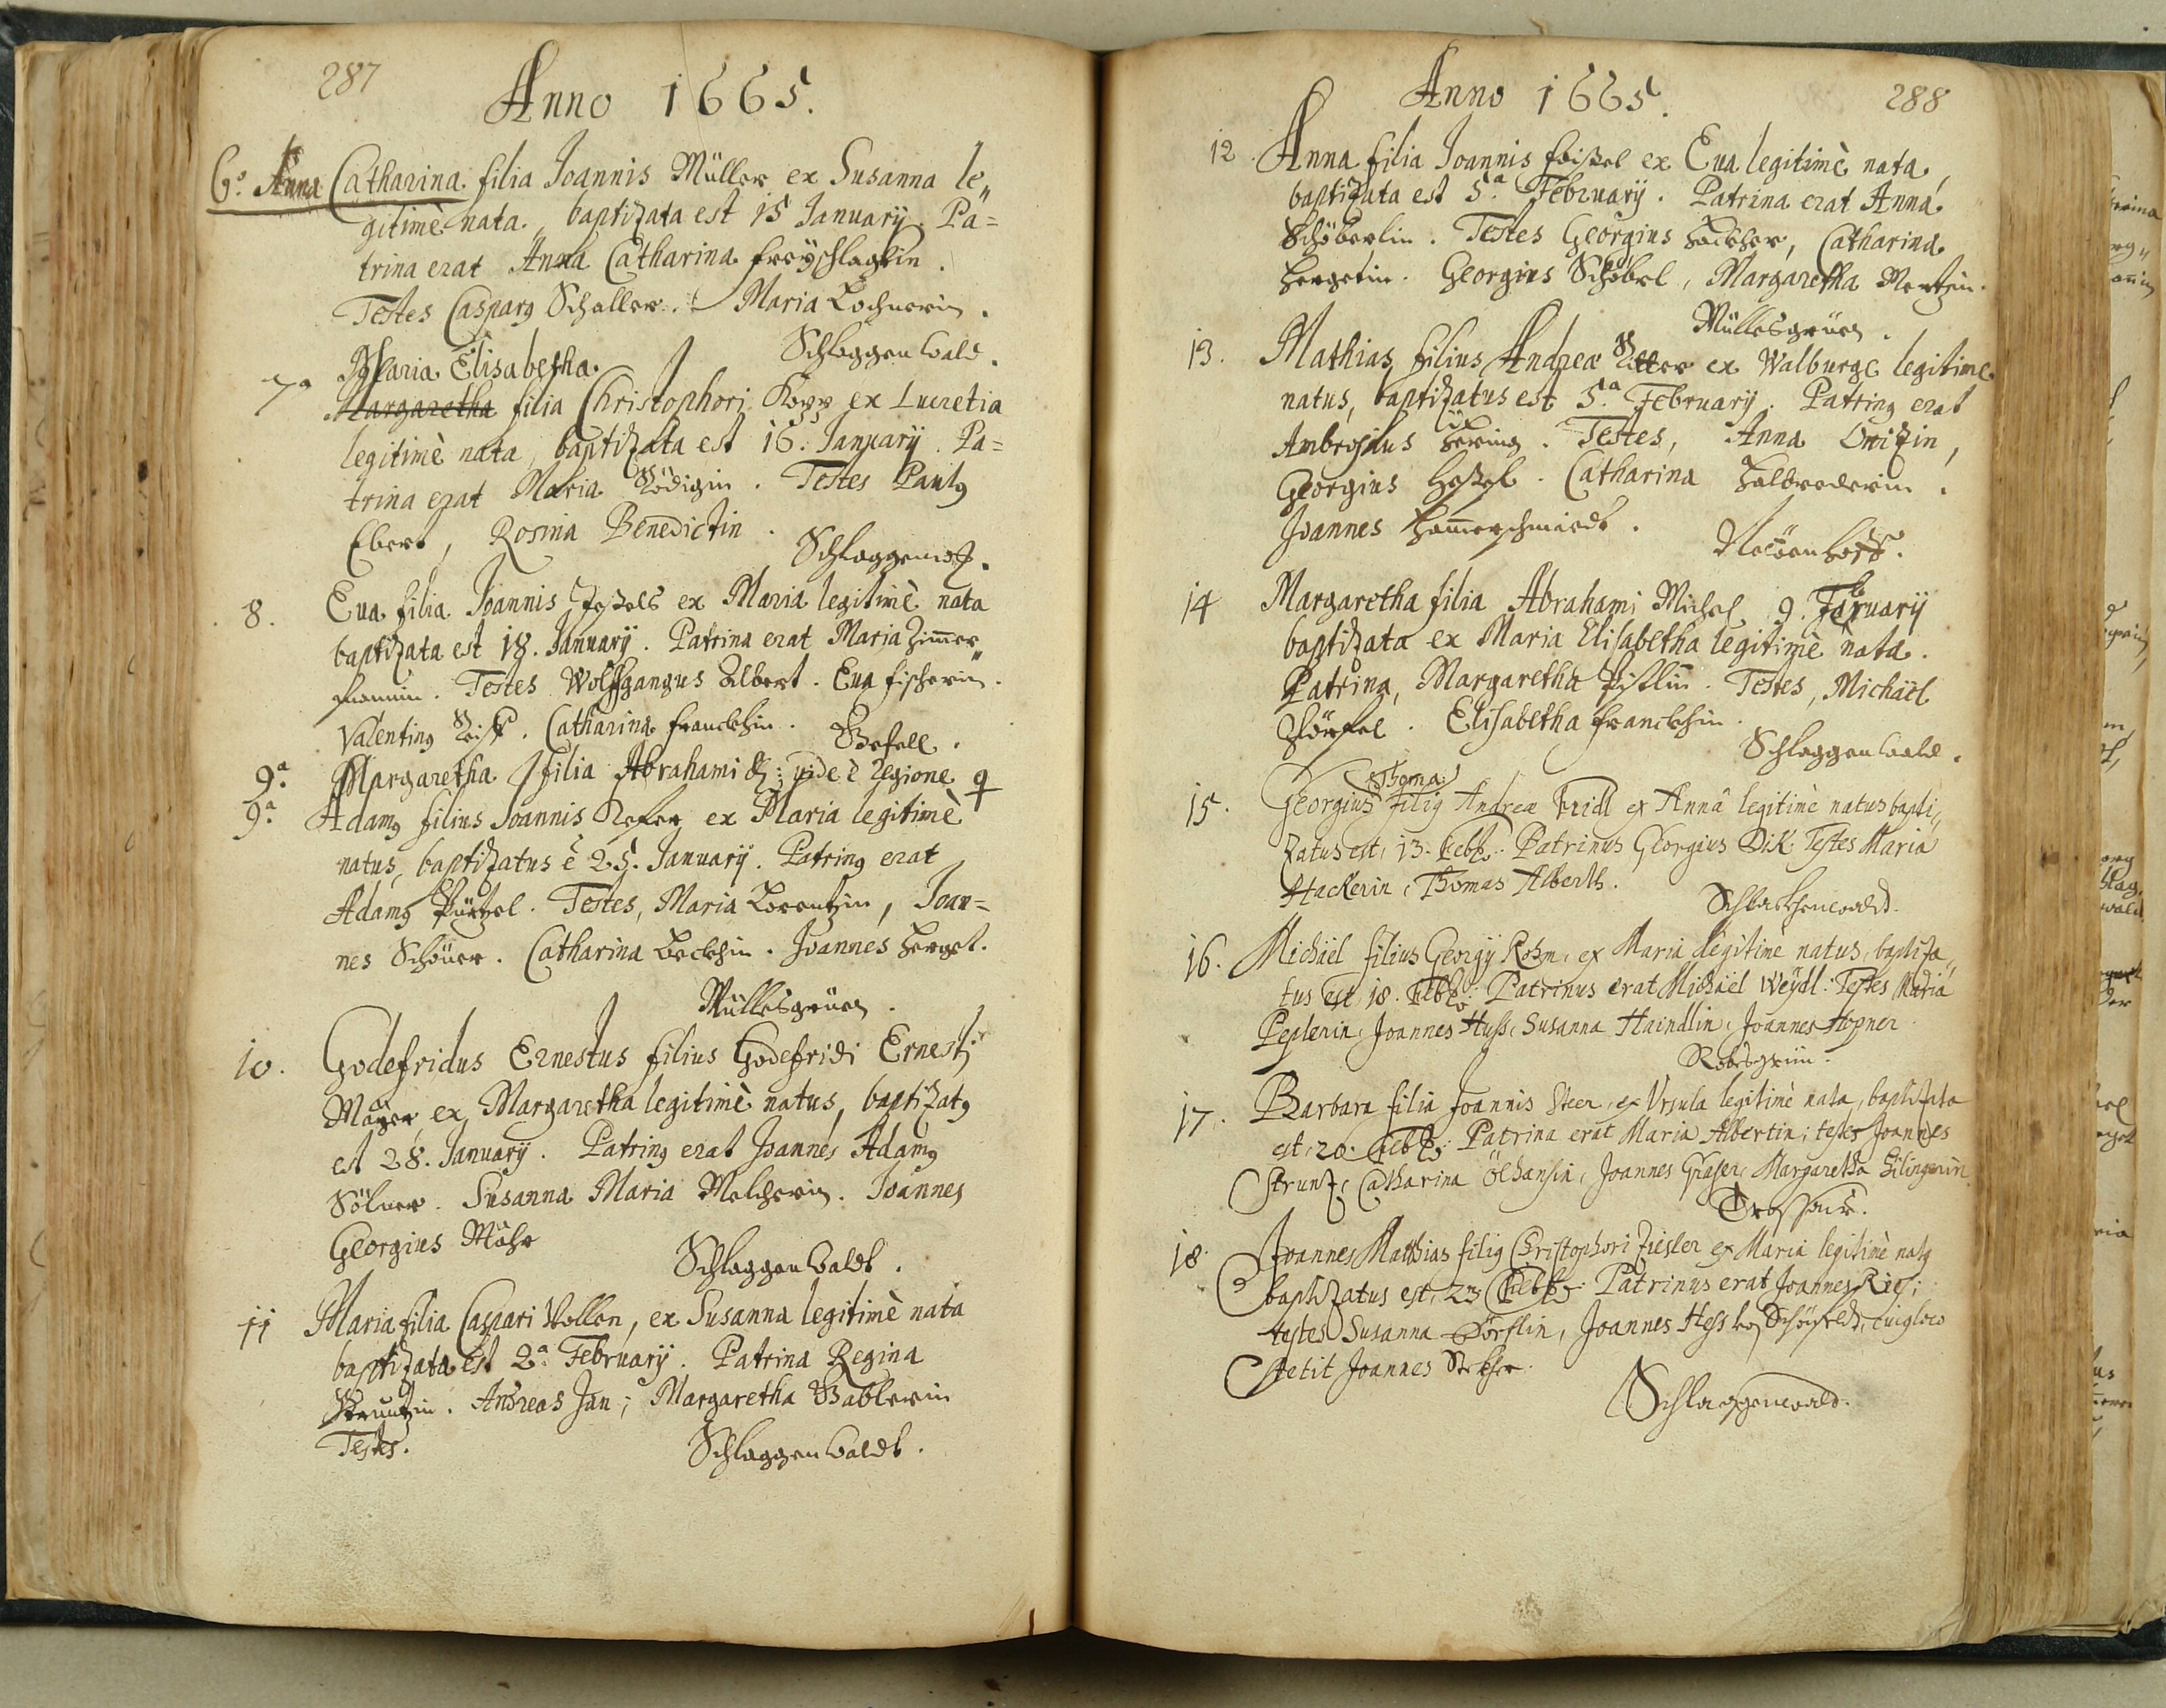 287
Anno 1665.
6.° Anna Catharina filia Joannis Müller ex Susanna le„
gitimè nata, baptizata est 15 January. Pa=
trina erat Anna Catharina Freyschlagin.
Testes Caspar9 Schaller. Maria Lochnerin.
Schlaggenwald.
Maria Elisabetha
7a Margaretha filia Christophori Kopp ex Lucretia
legitimè nata, baptizata est 16. January. Pa=
trina erat Maria Rödigin. Testes Paul9
Ebert, Rosina Benedictin.
Schlaggenw.
8. Eua filia Joannis ex Maria legitimè nata
baptizata est 18. January. Patrina erat Maria Zimmer„
manin. Testes Wolffgangus Albert. Eua Fischerin.
Valentin9 . Catharina Franckhin. Gefell.
9.a Margaretha filia Abrahami &: vide è regione
9.a Adam9 filius Joannis ex Maria legitimè
natus, baptizatus ē 25. January. Patrin9 erat
Adam9 . Testes, Maria Lorentzin, Joan=
nes Schöner. Catharina Beckhin. Joannes Herget.
Müllesgrüen.
10. Godefridus Ernestus filius Godefridi Ernesti
Mayer ex Margaretha legitimè natus, baptizat9
est 28. January. Patrin9 erat Joannes Adam9
Sölner. Susanna Maria Melcherin. Joannes
Georgius Mähr
Schlaggenwaldt.
11 Maria filia Caspari Vollen, ex Susanna legitimè nata
baptizata est 2.a February. Patrina Regina
Struntzin. Andreas Jan; Margaretha Gablerin
Testes.
Schlaggenwaldt.
Anno 1665.
288
12. Anna filia Joannis ex Eua legitimè nata,
baptizata est 5.a February. Patrina erat Anna
Schöberlin. Testes Georgius Hackher, Catharina
Hergetin. Georgius Schöbel, Margaretha Mertzin.
Müllesgrüen.
13. Mathias filius Andreæ ex Walburge legitime
natus, baptizatus est 5.a February. Patrin9 erat
Ambrosius . Testes, Anna ,
Georgius . Catharina .
Joannes Hamerschmiedt.
14 Margaretha filia Abrahami Michel 9. February
baptizata ex Maria Elisabetha legitimè nata.
Patrina, Margaretha . Testes, Michäel
. Elisabetha Franckhin.
Schlaggenwald.
Thoma
15. Georgius fili9 Andreæ ex Anna legitimè natus bapti„
zatus est, 13. Feb: Patrinus Georgius Dik Testes Maria
Hackerin, Thomas Alberth.
Schlackhenwald.
16. Michäel filius Georgij Rohm, ex Maria legitime natus, baptiza„
tus est, 18. Feb: Patrinus erat Michäel Weydl: Testes Maria
Peplerin, Joannes Huss, Susanna Haindlin, Joannes Hopner
Robesgrün.
17. Barbara filia Joannis Steer, ex Ursula legitimè nata, baptizata
est, 20. Feb: Patrina erat Maria Albertin; testes Joannes
Strunz, Catharina Ölhansin, Joannes Graser, Margaretha Silingerin
18. Joannes Matthias fili9 Christophori Ziesler ex Maria legitimè nat9
baptizatus est, 23 Feb: Patrinus erat Joannes Ries;
testes Susanna Dörflin, Joannes Hess Schönfeldt, cui9 loco
stetit Joannes .
Schlaggenwald.